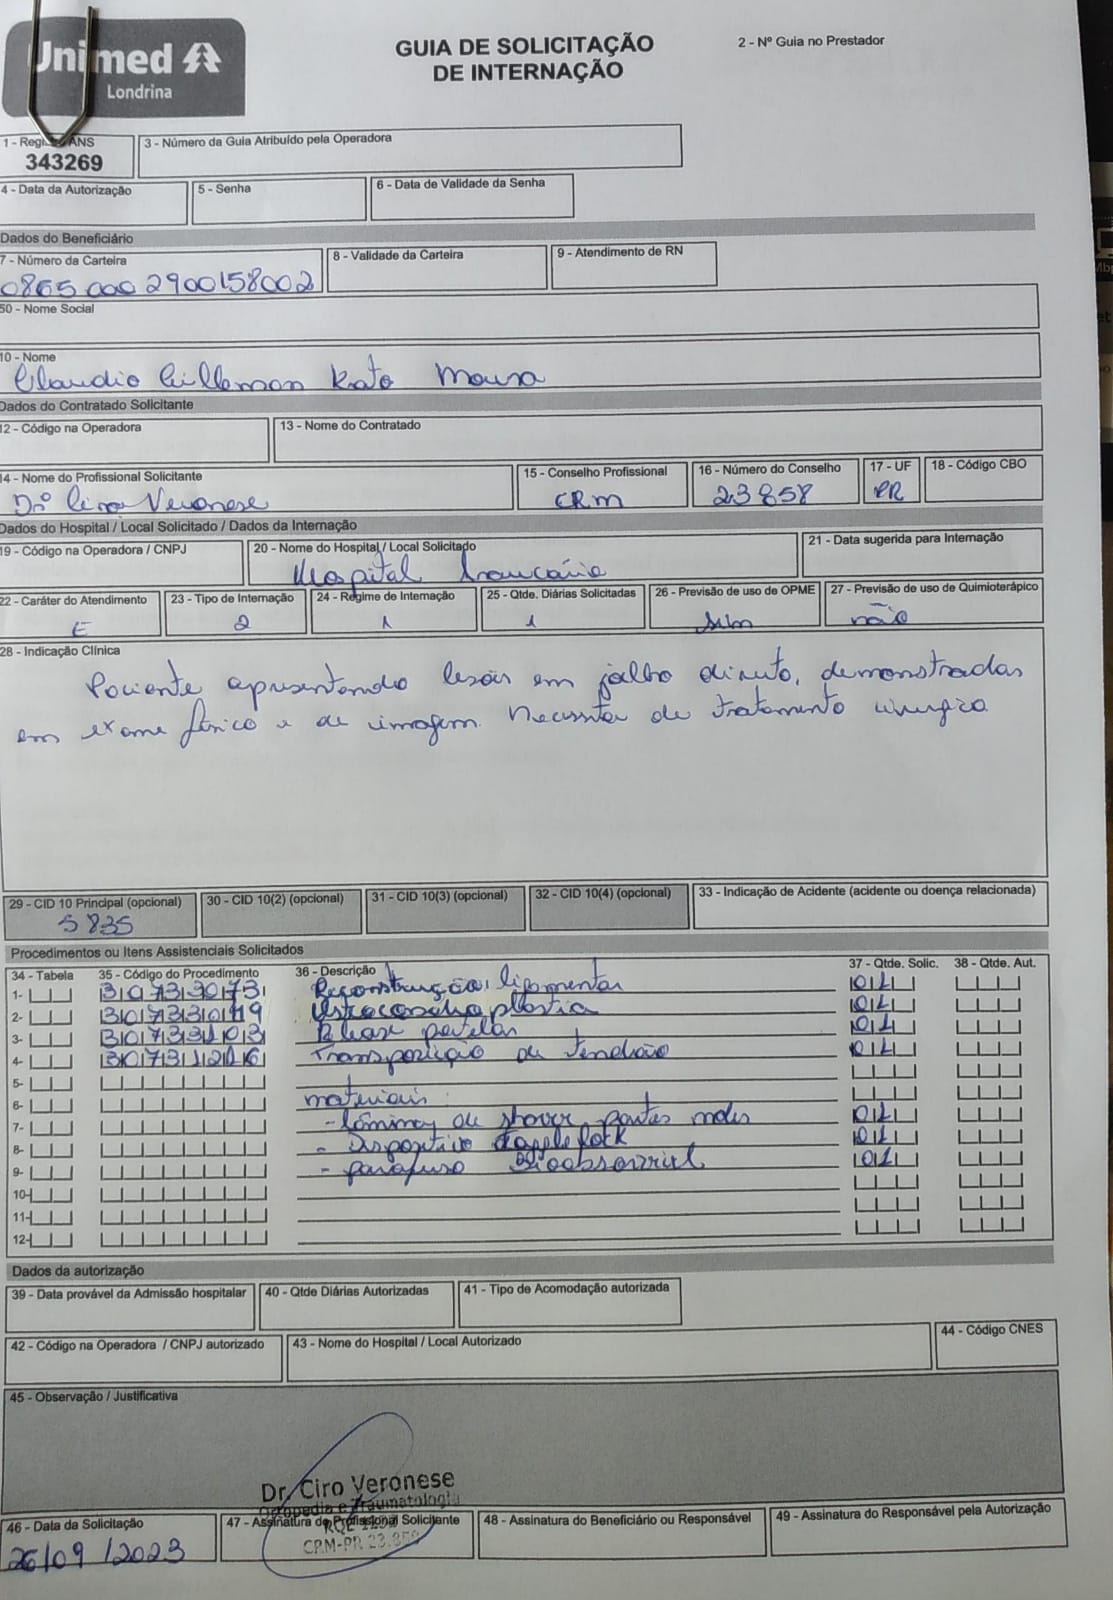 Unimed
Londrina
GUIA DE SOLICITAÇÃO
DE INTERNAÇÃO
2 - Nº Guia no Prestador
1 - Regi ANS
343269
3 - Número da Guia Atribuído pela Operadora
4 - Data da Autorização
5 - Senha
6 - Data de Validade da Senha
Dados do Beneficiário
7 - Número da Carteira
0865 000 2900158002
8 - Validade da Carteira
9 - Atendimento de RN
50 - Nome Social
10 - Nome
Claudio Guillemon Kato Moura
Dados do Contratado Solicitante
12 - Código na Operadora
13 - Nome do Contratado
14 - Nome do Profissional Solicitante
Drº Ciro Veronese
15 - Conselho Profissional
CRM
16 - Número do Conselho
23858
17 - UF
PR
18 - Código CBO
Dados do Hospital / Local Solicitado / Dados da Internação
19 - Código na Operadora / CNPJ
20 - Nome do Hospital / Local Solicitado
Hospital Araucária
21 - Data sugerida para Internação
22 - Caráter do Atendimento
E
23 - Tipo de Internação
2
24 - Regime de Internação
1
25 - Qtde. Diárias Solicitadas
1
26 - Previsão de uso de OPME
sim
27 - Previsão de uso de Quimioterápico
não
28 - Indicação Clínica
Paciente apresentando lesões em joelho direito, demonstradas
em exame físico e de imagem. Necessita de tratamento cirurgico
29 - CID 10 Principal (opcional)
S 835
30 - CID 10(2) (opcional)
31 - CID 10(3) (opcional)
32 - CID 10(4) (opcional)
33 - Indicação de Acidente (acidente ou doença relacionada)
Procedimentos ou Itens Assistenciais Solicitados
34 - Tabela
35 - Código do Procedimento
36 - Descrição
37 - Qtde. Solic.
38 - Qtde. Aut.
1- 30733073 Reconstrução ligamentar 01
2- 30733049 Osteocondroplastia 01
3- 30733103 Release patelar 01
4- 30731216 Transposição de tendão 01
5-
6- materiais:
7- - lâmina de shaver partes moles 01
8- - Dispositivo 01
9- - parafuso Bioabsorvivel 01
10-
11-
12-
Dados da autorização
39 - Data provável da Admissão hospitalar
40 - Qtde Diárias Autorizadas
41 - Tipo de Acomodação autorizada
42 - Código na Operadora / CNPJ autorizado
43 - Nome do Hospital / Local Autorizado
44 - Código CNES
45 - Observação / Justificativa
Dr. Ciro Veronese
Ortopedia e Traumatologia
CRM-PR 23.858
46 - Data da Solicitação
26/09/2023
47 - Assinatura do Profissional Solicitante
48 - Assinatura do Beneficiário ou Responsável
49 - Assinatura do Responsável pela Autorização